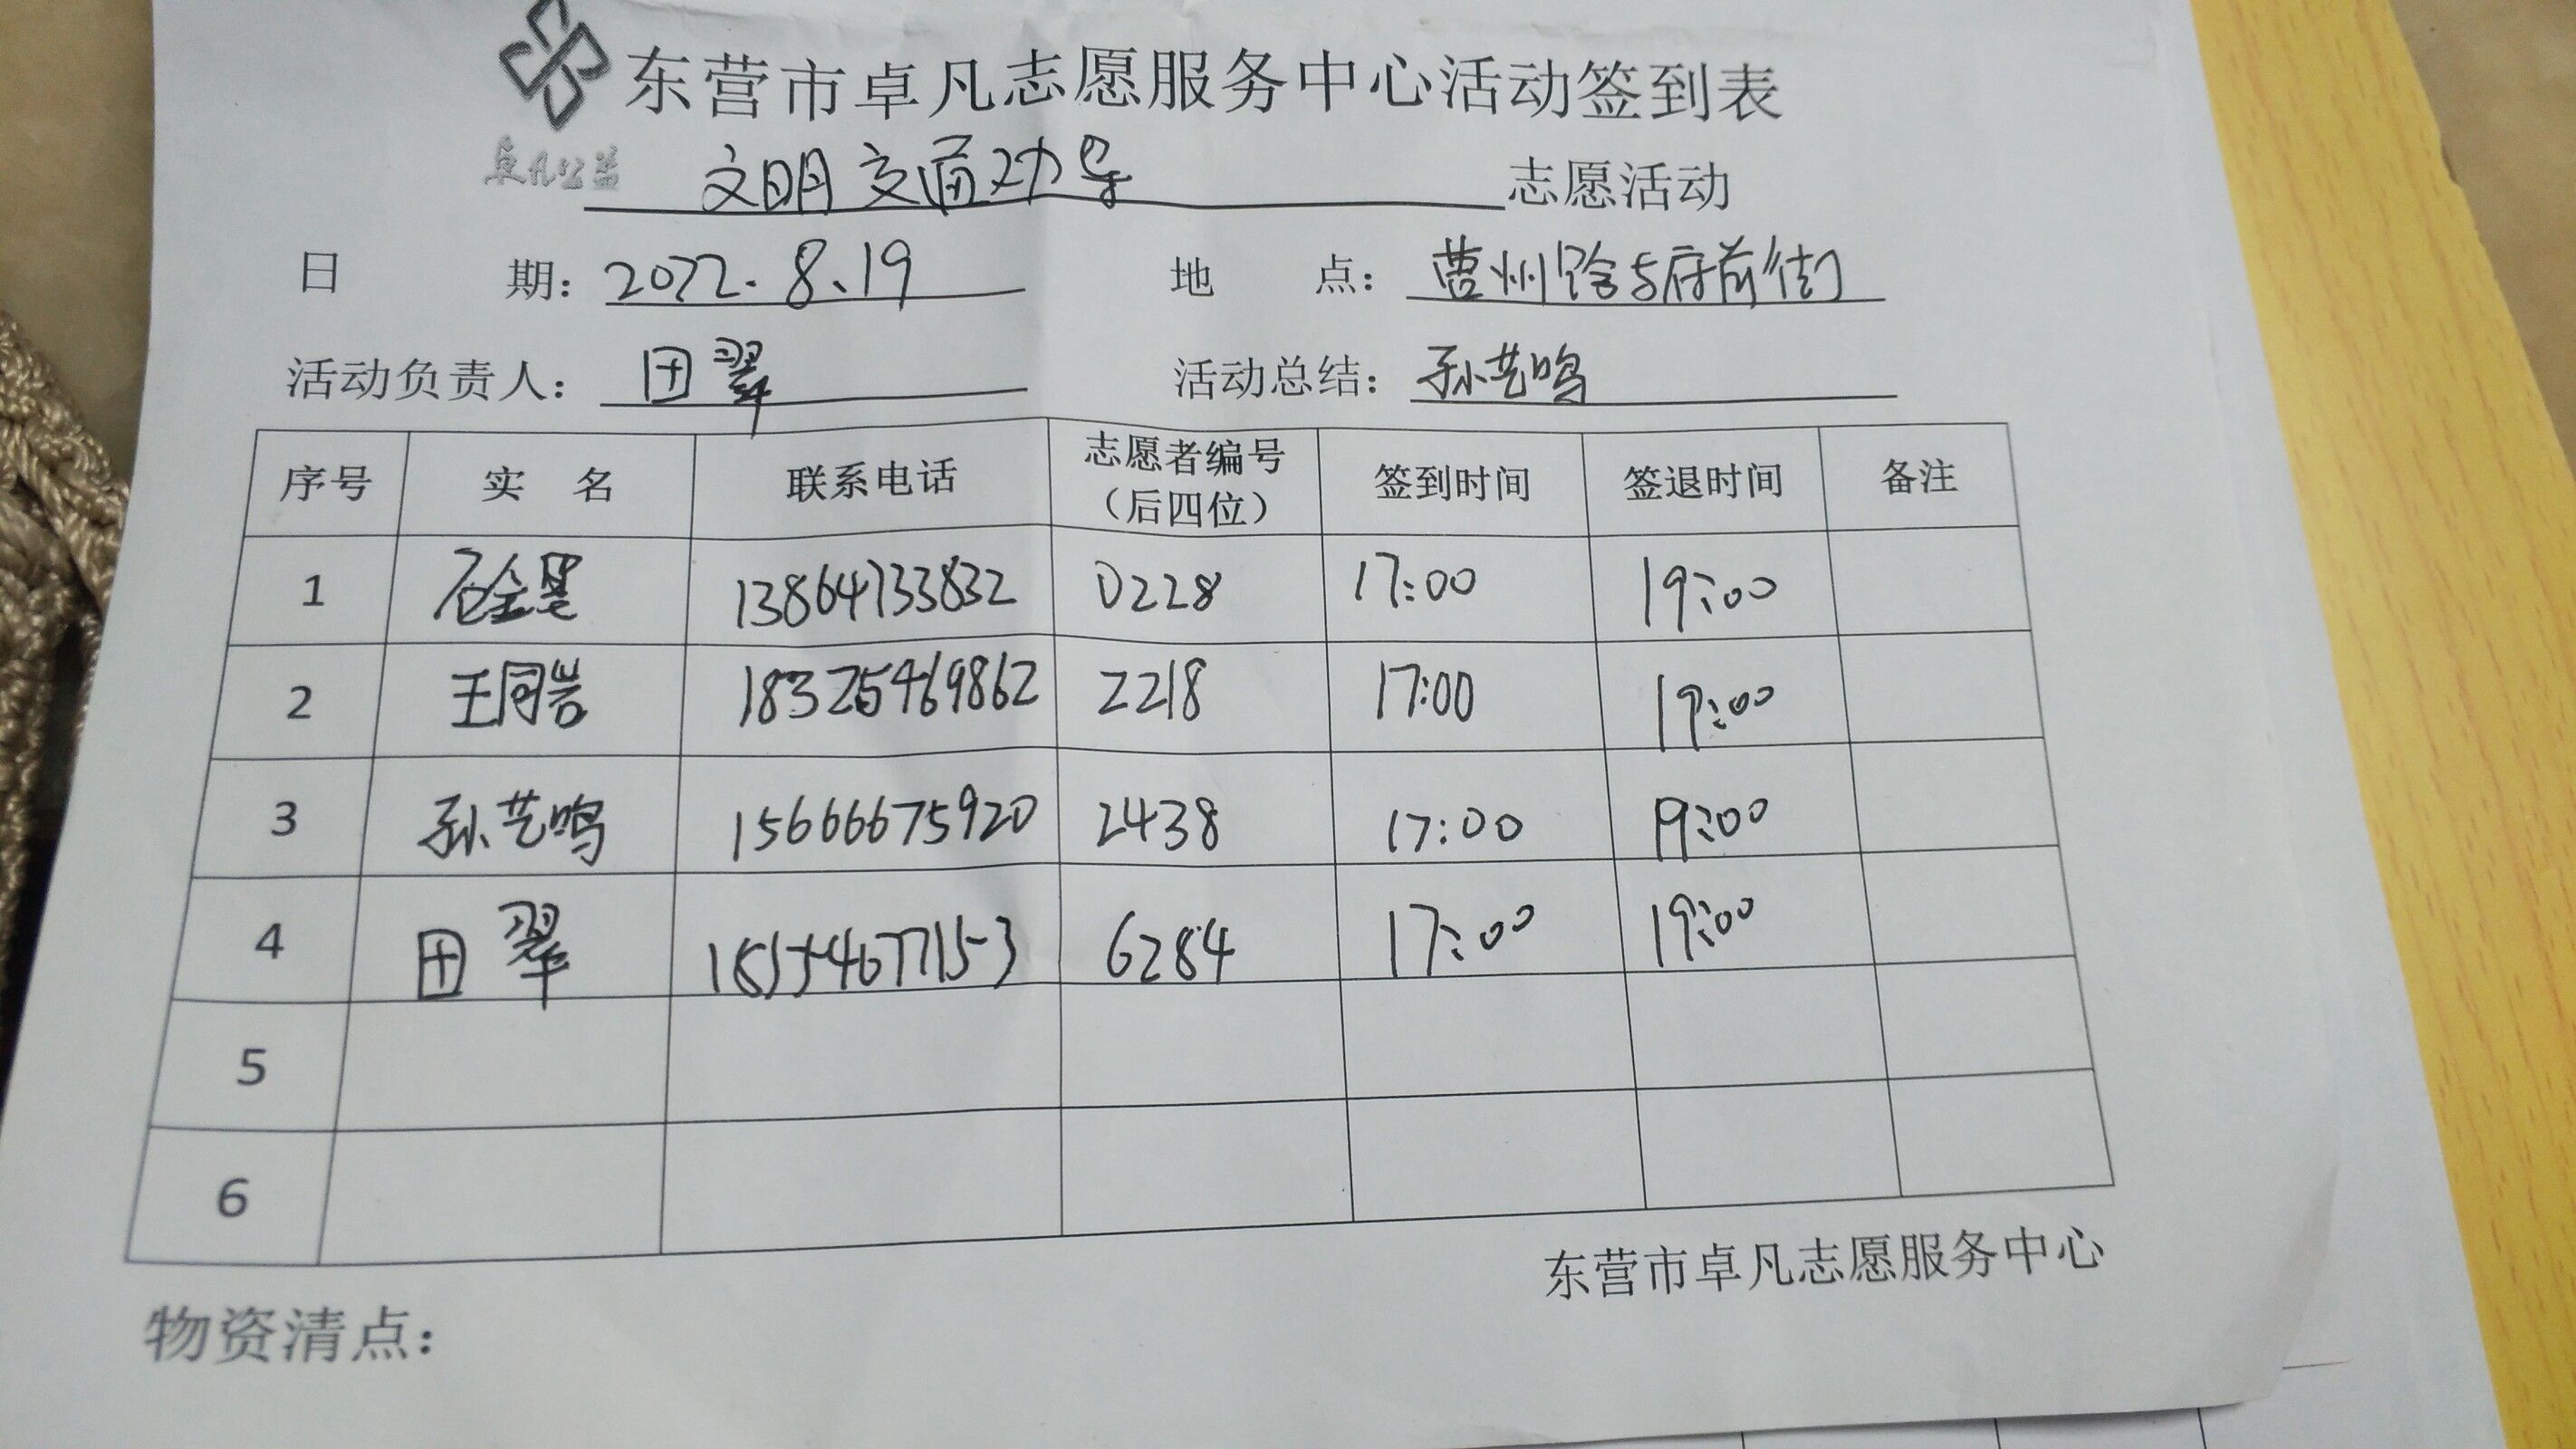 东营市卓凡志愿服务中心活动签到表
卓凡公益
文明交通劝导 志愿活动
日 期: 2022.8.19 地 点: 曹州路与府前街
活动负责人: 田翠 活动总结: 孙艺鸣
序号 实 名 联系电话 志愿者编号(后四位) 签到时间 签退时间 备注
1 13864733832 0228 17:00 19:00
2 王同岩 18325469862 2218 17:00 19:00
3 孙艺鸣 15666675920 2438 17:00 19:00
4 田翠 18554677153 6284 17:00 19:00
5
6
东营市卓凡志愿服务中心
物资清点: